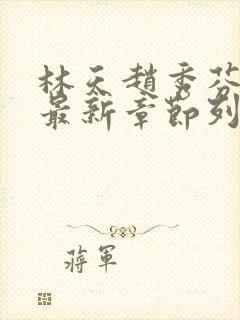 林天趙秀芬
最新章節列
蔣軍